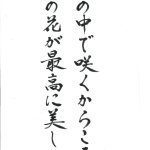 の中で咲くからこそ
の花が最高に美し